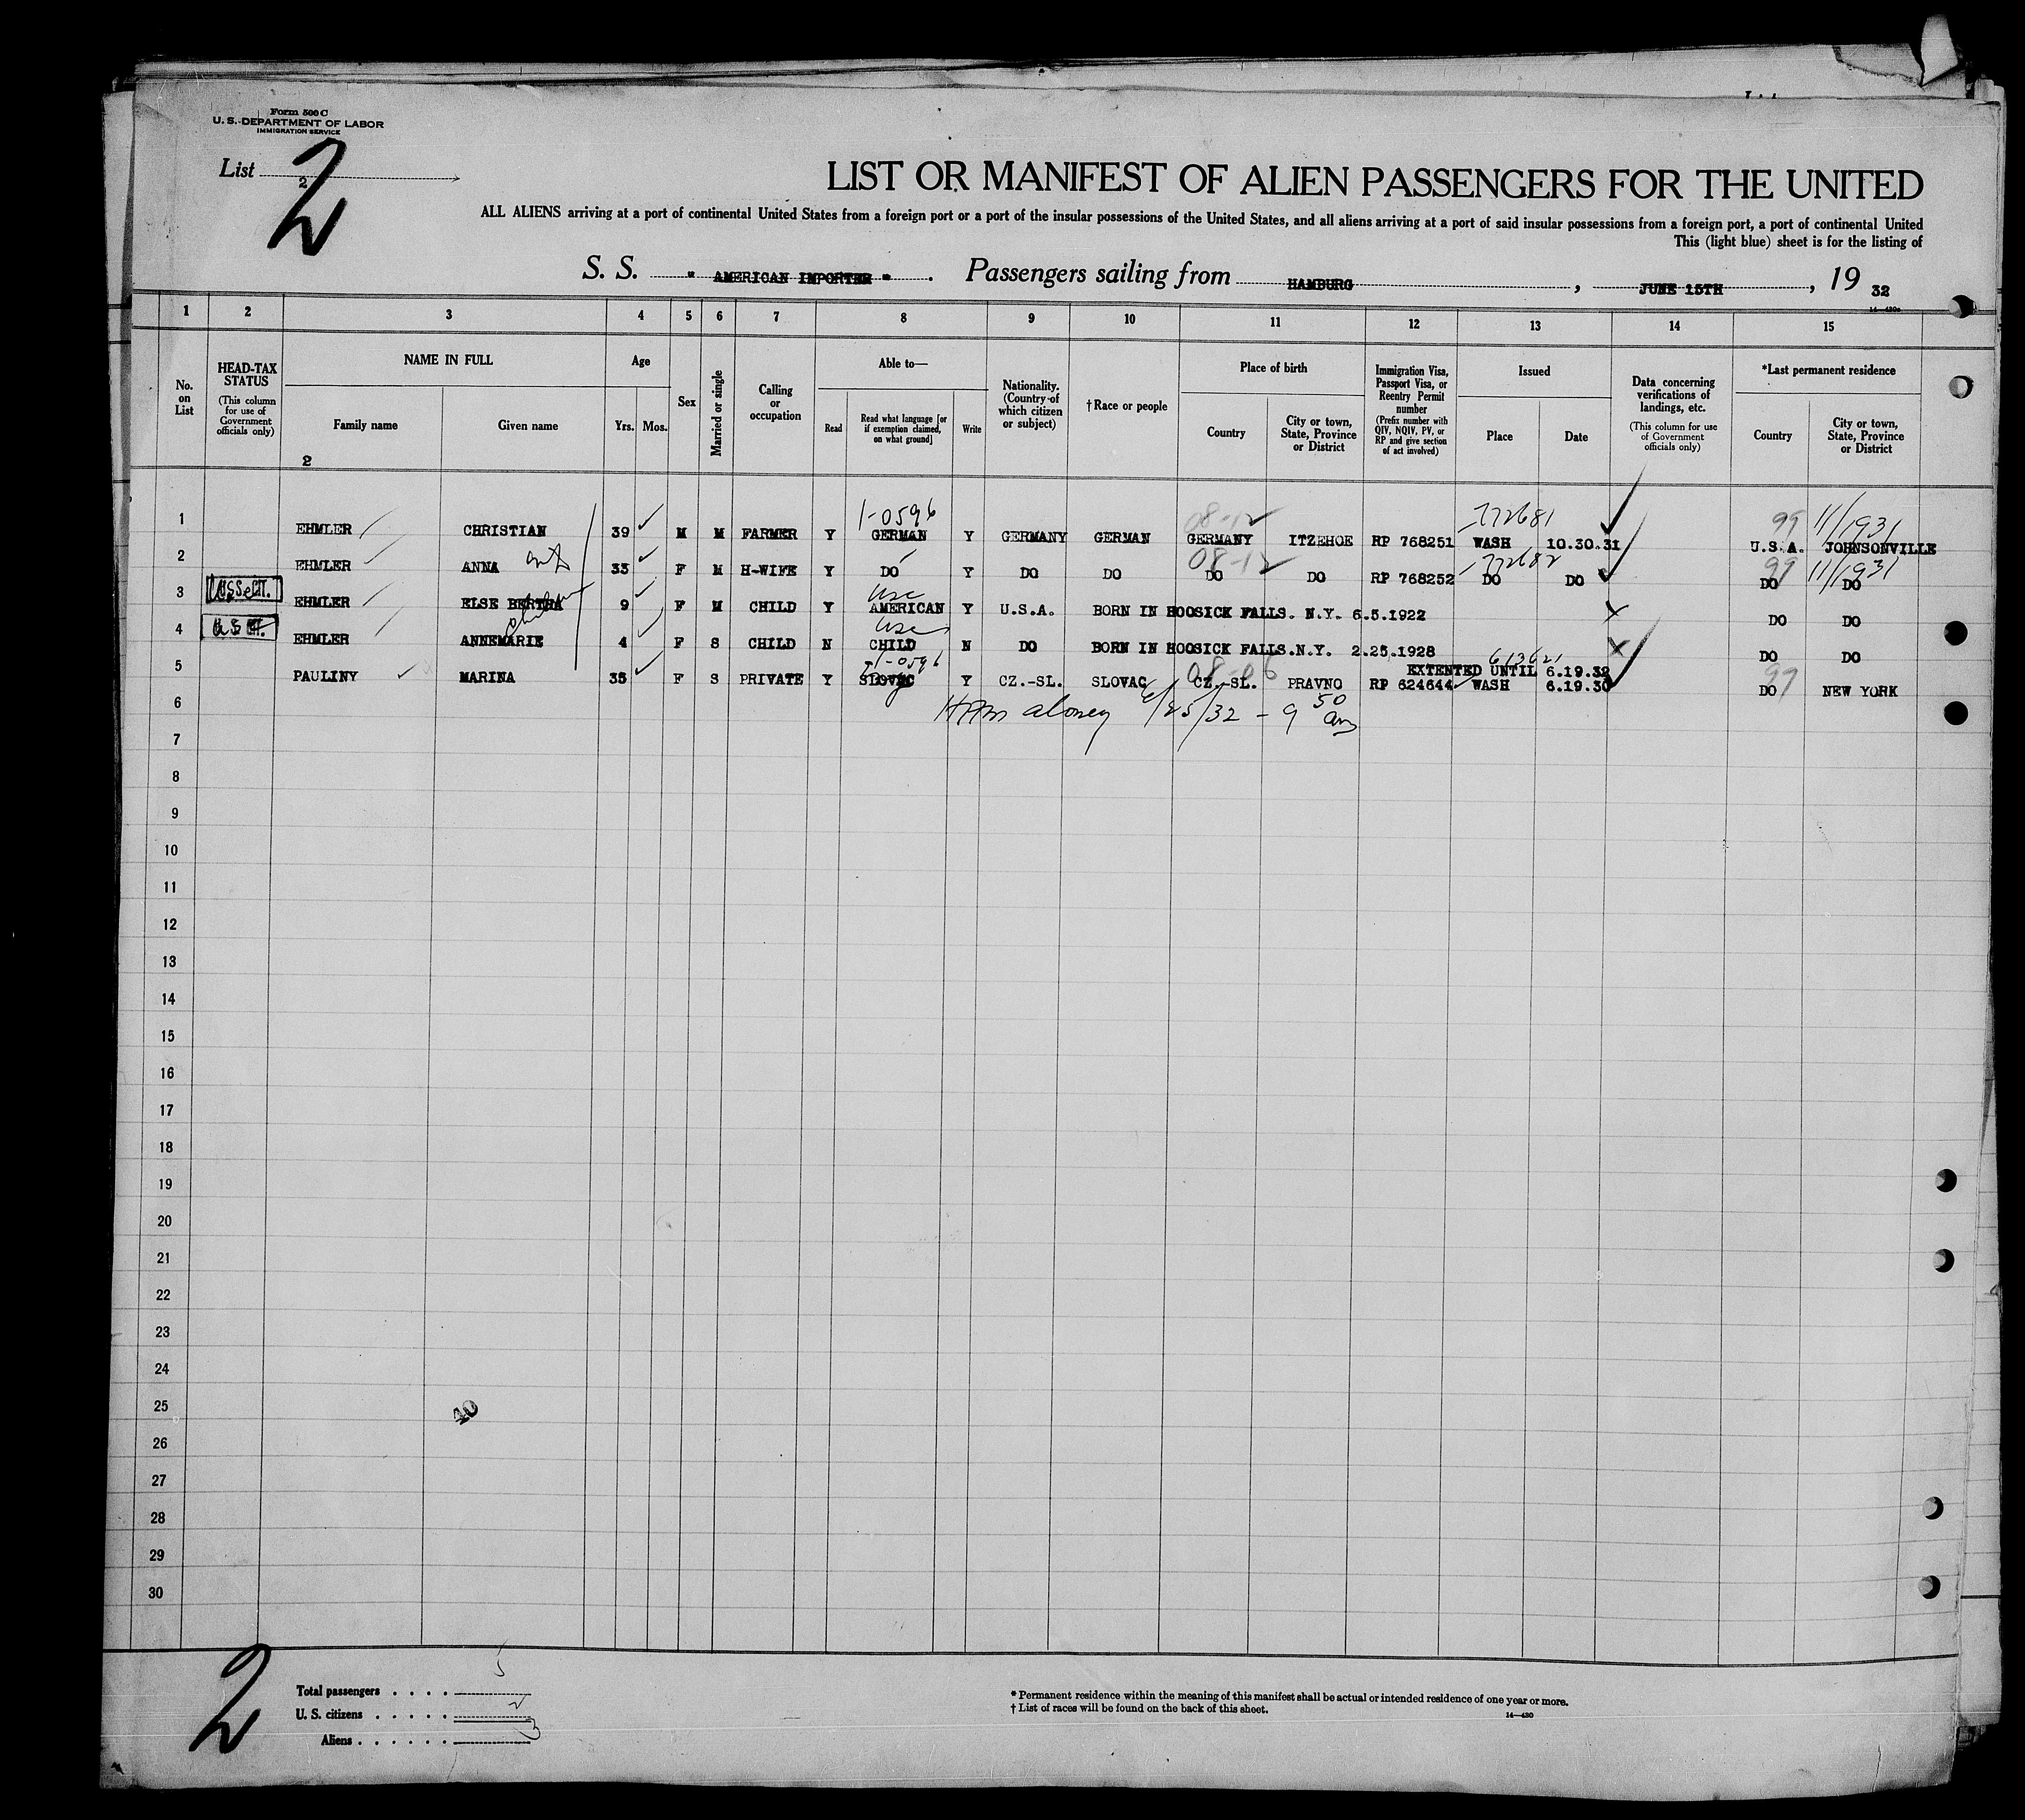 Form 500 C
U. S. DEPARTMENT OF LABOR
IMMIGRATION SERVICE
List 2
2
LIST OR MANIFEST OF ALIEN PASSENGERS FOR THE UNITED
ALL ALIENS arriving at a port of continental United States from a foreign port or a port of the insular possessions of the United States, and all aliens arriving at a port of said insular possessions from a foreign port, a port of continental United
This (light blue) sheet is for the listing of
S. S. " AMERICAN IMPORTER " . Passengers sailing from HAMBURG , JUNE 15TH , 19 32
1 2 3 4 5 6 7 8 9 10 11 12 13 14 15
No. on List
HEAD-TAX STATUS (This column for use of Government officials only)
NAME IN FULL
Family name
Given name
2
Age
Yrs. Mos.
Sex
Married or single
Calling or occupation
Able to—
Read
Read what language [or if exemption claimed, on what ground]
Write
Nationality. (Country of which citizen or subject)
† Race or people
Place of birth
Country
City or town, State, Province or District
Immigration Visa, Passport Visa, or Reentry Permit number (Prefix number with QIV, NQIV, PV, or RP and give section of act involved)
Issued
Place
Date
Data concerning verifications of landings, etc. (This column for use of Government officials only)
*Last permanent residence
Country
City or town, State, Province or District
1-0596 08-12 772681 99 11/1931
1 EHMLER CHRISTIAN 39 M M FARMER Y GERMAN Y GERMANY GERMAN GERMANY ITZEHOE RP 768251 WASH 10.30.31 U.S.A. JOHNSONVILLE
08-12 772682 99 11/1931
2 EHMLER ANNA 33 F M H-WIFE Y DO Y DO DO DO DO RP 768252 DO DO DO DO
USC
3 EHMLER ELSE BERTHA 9 F M CHILD Y AMERICAN Y U.S.A. BORN IN HOOSICK FALLS. N.Y. 6.5.1922 DO DO
USC
4 EHMLER ANNEMARIE 4 F S CHILD N CHILD N DO BORN IN HOOSICK FALLS.N.Y. 2.25.1928 DO DO
1-0596 08-06 613621 99
EXTENTED UNTIL 6.19.32
5 PAULINY MARINA 35 F S PRIVATE Y SLOVAC Y CZ.-SL. SLOVAC CZ.-SL. PRAVNO RP 624644 WASH 6.19.30 DO NEW YORK
6 6/25/32 - 9 50 am
7
8
9
10
11
12
13
14
15
16
17
18
19
20
21
22
23
24
25
40
26
27
28
29
30
2
Total passengers . . . . 5
U. S. citizens . . . . . 2
Aliens . . . . . . 3
* Permanent residence within the meaning of this manifest shall be actual or intended residence of one year or more.
† List of races will be found on the back of this sheet.
14—430